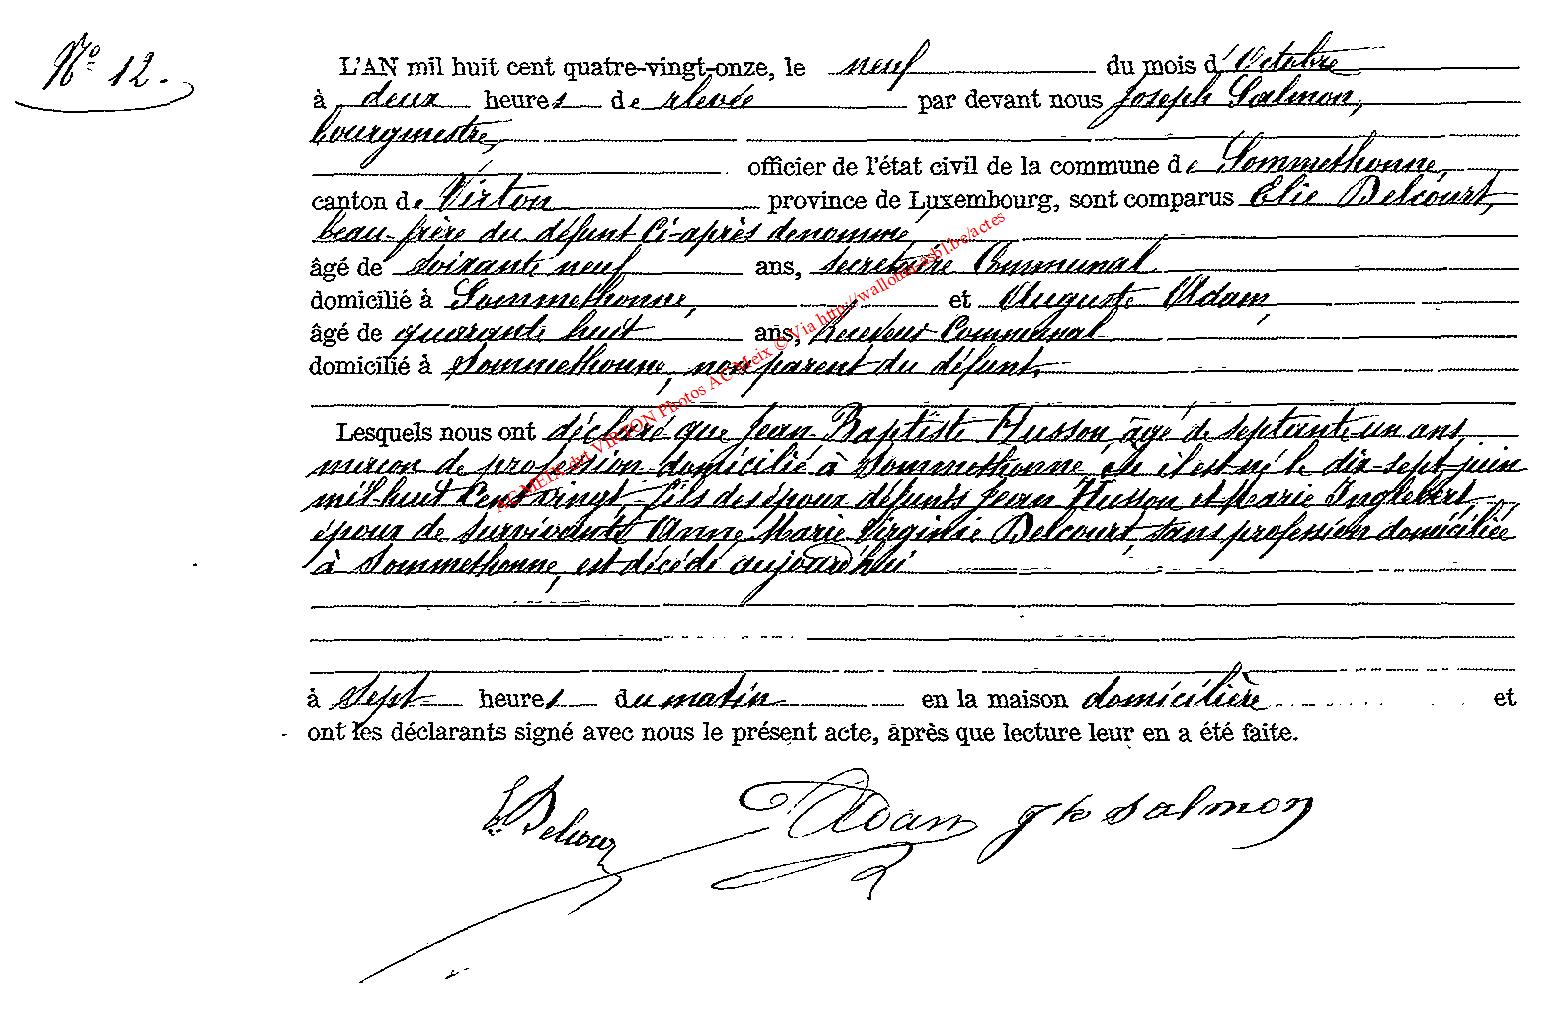 N° 12.
L'AN mil huit cent quatre-vingt-onze, le neuf du mois d'Octobre
à deux heures de relevée par devant nous Joseph Salmon,
bourgmestre,
officier de l'état civil de la commune de Sommethonne,
canton de Virton province de Luxembourg, sont comparus Elie Delcourt,
beau-frère du défunt ci-après dénommé,
âgé de soixante neuf ans, secrétaire Communal
domicilié à Sommethonne, et Auguste Adam,
âgé de quarante huit ans, Receveur Communal
domicilié à Sommethonne, non parent du défunt.
Lesquels nous ont déclaré que Jean Baptiste Husson, âgé de septante-un ans,
de profession domicilié à Sommethonne, où il est né le dix-sept juin
mil-huit cent vingt, fils des époux défunts Jean Husson et Marie Inglebert,
époux de survivante Anne Marie Virginie Delcourt, sans profession domiciliée
à Sommethonne, est décédé aujourd'hui
à sept heures du matin en la maison domicilière et
ont les déclarants signé avec nous le présent acte, après que lecture leur en a été faite.
E. Delcour Adam Jh Salmon
AC MEIX dvt VIRTON Photos AC Meix © Via http://wallonia-asbl.be/actes